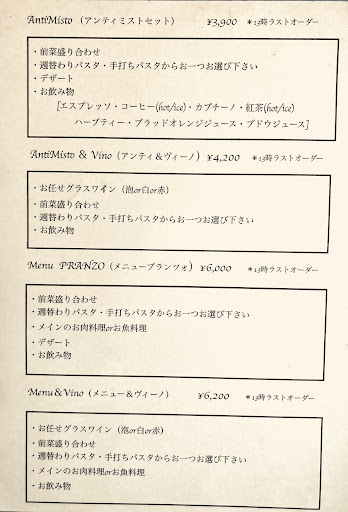 AntiMisto（アンティミストセット） ¥3,900 ＊13時ラストオーダー
・前菜盛り合わせ
・週替わりパスタ・手打ちパスタからお一つお選び下さい
・デザート
・お飲み物
[エスプレッソ・コーヒー(hot/ice)・カプチーノ・紅茶(hot/ice)
ハーブティー・ブラッドオレンジジュース・ブドウジュース]
AntiMisto & Vino（アンティ＆ヴィーノ）¥4,200 ＊13時ラストオーダー
・お任せグラスワイン（泡or白or赤）
・前菜盛り合わせ
・週替わりパスタ・手打ちパスタからお一つお選び下さい
・お飲み物
Menu PRANZO（メニュープランツォ）¥6,000 ＊13時ラストオーダー
・前菜盛り合わせ
・週替わりパスタ・手打ちパスタからお一つお選び下さい
・メインのお肉料理orお魚料理
・デザート
・お飲み物
Menu&Vino（メニュー＆ヴィーノ） ¥6,200 ＊13時ラストオーダー
・お任せグラスワイン（泡or白or赤）
・前菜盛り合わせ
・週替わりパスタ・手打ちパスタからお一つお選び下さい
・メインのお肉料理orお魚料理
・お飲み物